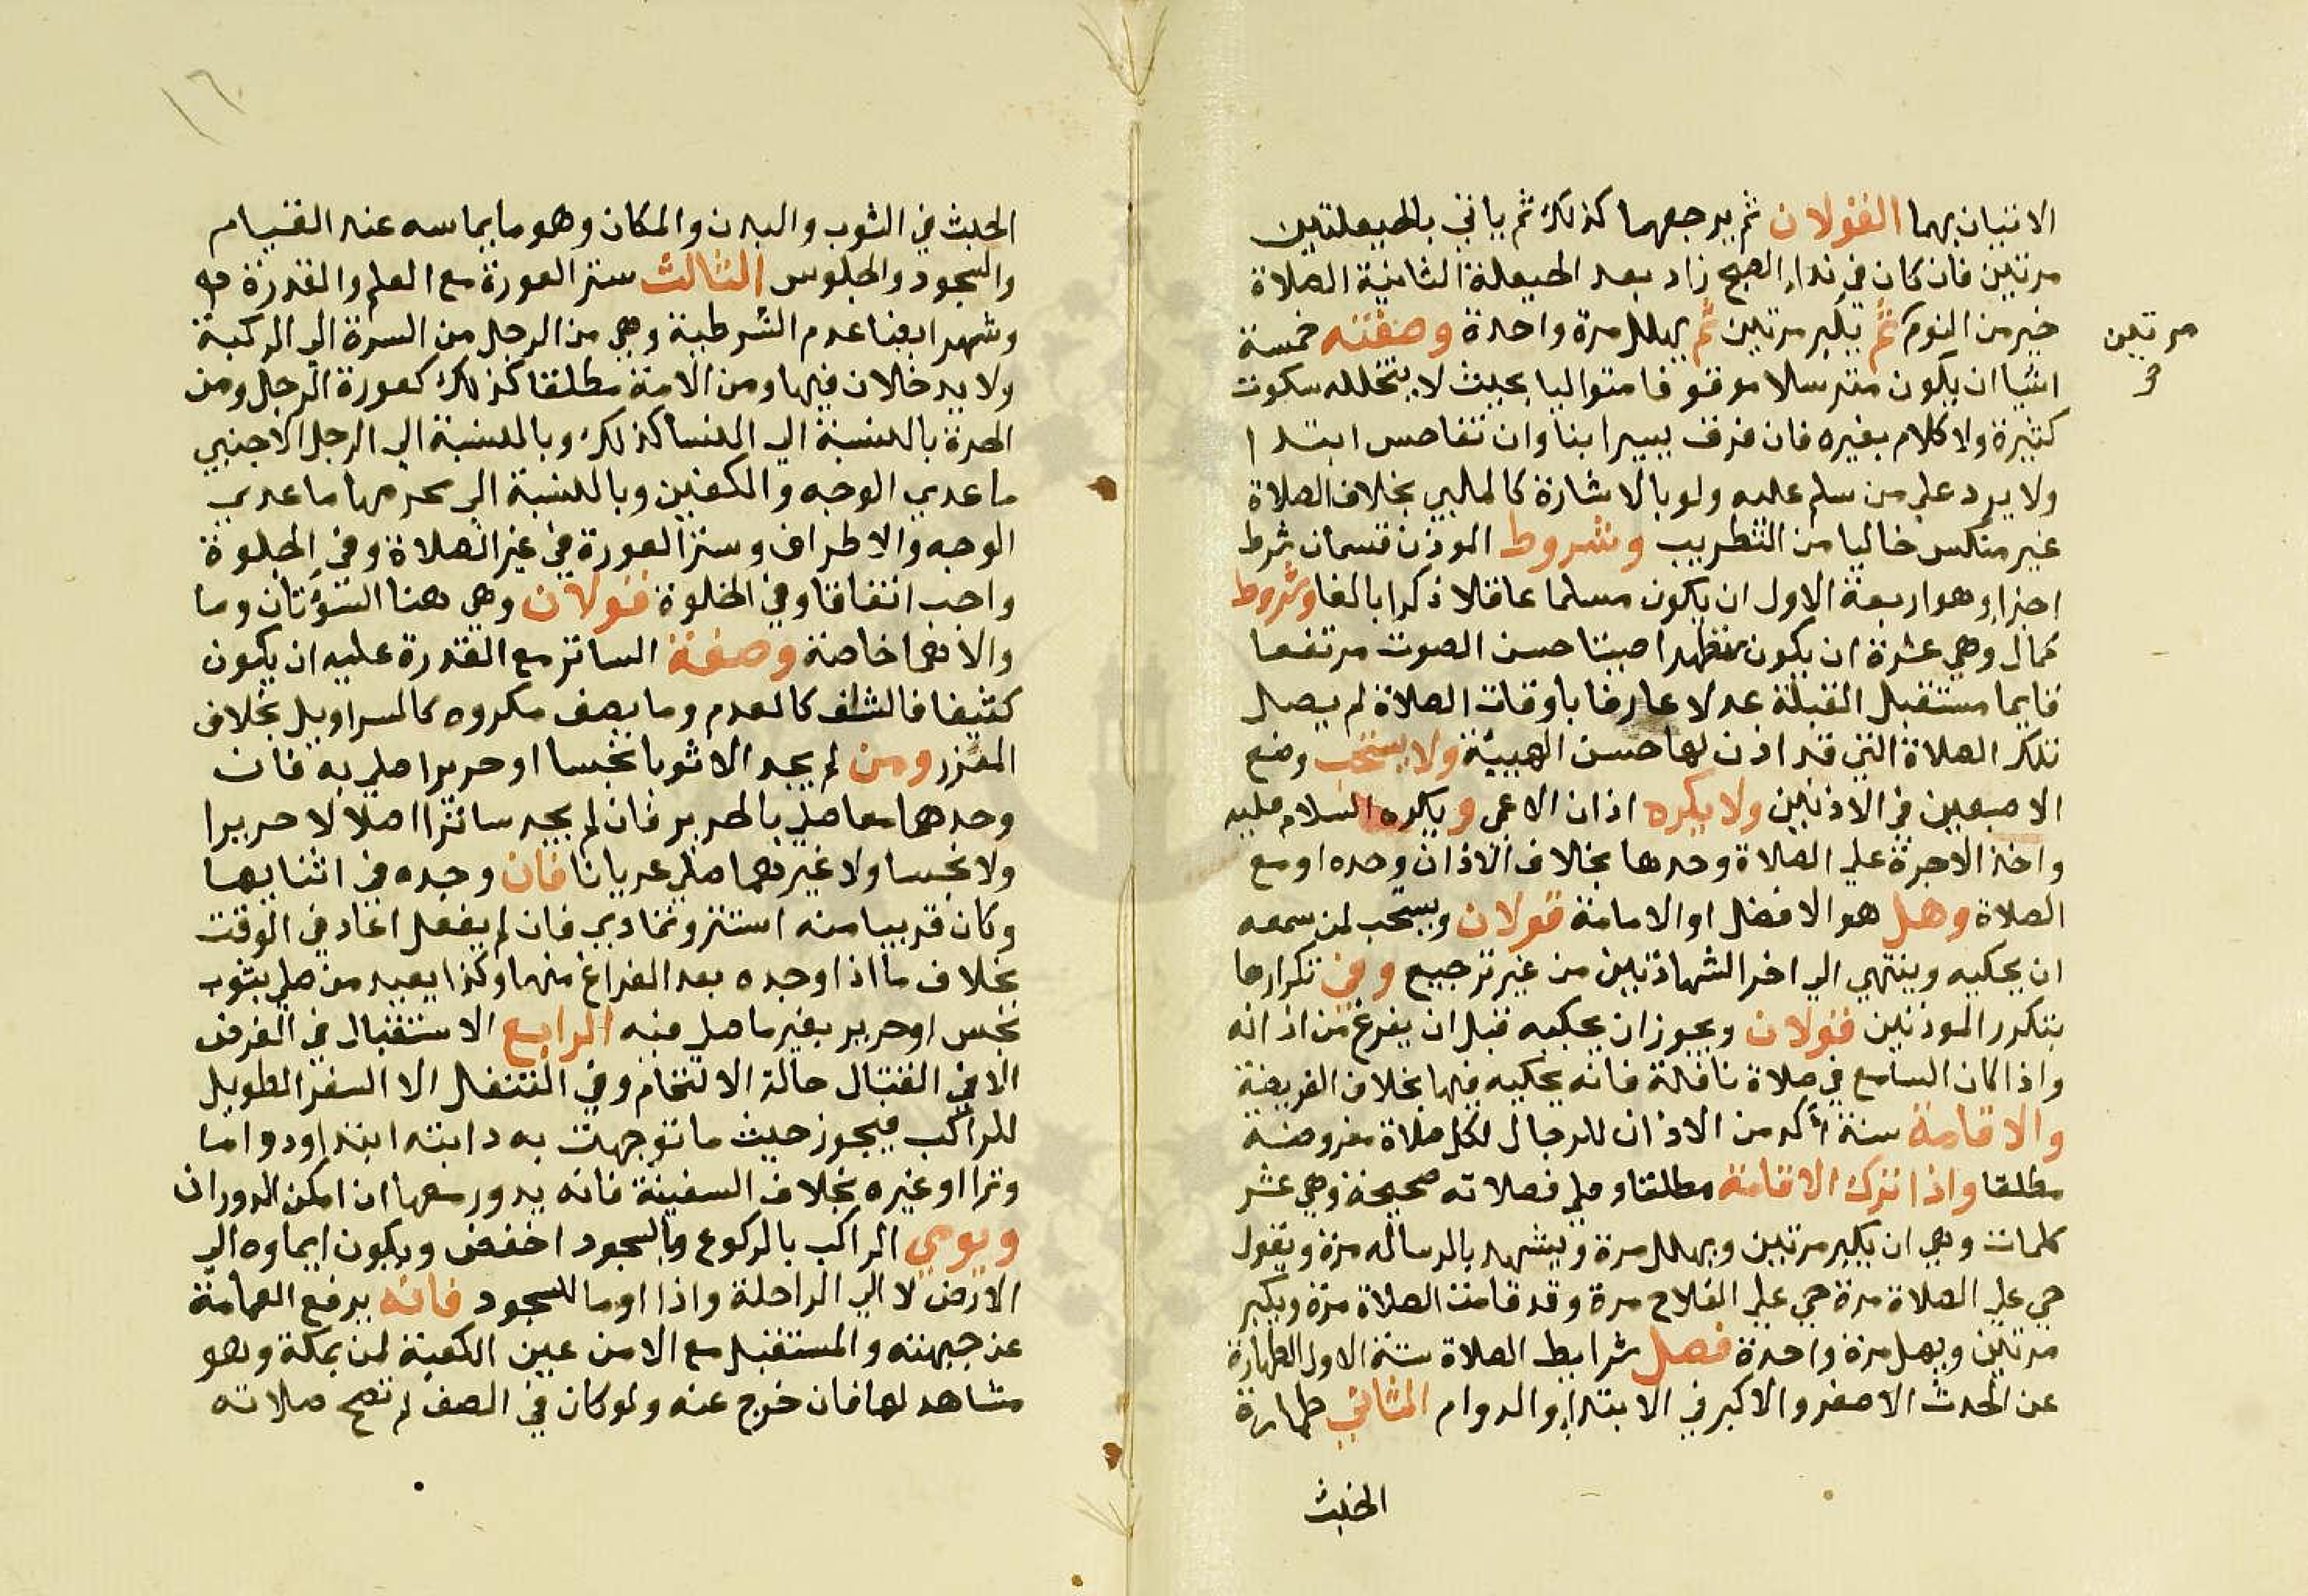 الاتيان بهما القولان ثم يرجعهما كذلك ثم ياتي بالحيعلتين
مرتين فان كان في نداء الصبح زاد بعد الحيعلة الثانية الصلاة
خير من النوم ثم يكبر مرتين ثم يهلل مرة واحدة وصفته خمسة
مرتين
اشيا ان يكون مترسلا موقوفا متواليا بحيث لا يتخلله سكوت
كثيرة ولا كلام بغيره فان فرق يسيرا بنا وان تفاحش ابتدا
ولا يرد على من سلم عليه ولو بالاشارة كالملبي بخلاف الصلاة
غير منكس خاليا من التطريب وشروط الموذن قسمان شرط
اجزاء وهو اربعة الاول ان يكون مسلما عاقلا ذكرا بالغا وشروط
كمال وهي عشرة ان يكون متطهرا صيتا حسن الصوت مرتفعا
قايما مستقبل القبلة عدلا عارفا باوقات الصلاة لم يصل
تلك الصلاة التي قد اذن لها حسن الهيئة ولا يستحب وضع
الاصبعين في الاذنين ولا يكره اذان الاعمى ويكره السلام عليه
واخذ الاجرة على الصلاة وحدها بخلاف الاذان وحده او مع
الصلاة وهل هو الافضل او الامامة قولان ويستحب لمن سمعه
ان يحكيه وينتهي الى اخر الشهادتين من غير ترجيع وفي تكرارها
بتكرر الموذنين قولان ويجوز ان يحكيه قبل ان يفرغ من اذانه
واذا كان السامع في صلاة نافلة فانه يحكيه فيها بخلاف الفريضة
والاقامة سنة أكد من الاذان للرجال لكل صلاة مفروضة
مطلقا واذا ترك الاقامة مطلقا وصلى فصلاته صحيحة وهي عشر
كلمات وهي ان يكبر مرتين ويهلل مرة ويتشهد بالرسالة مرة ويقول
حي على الصلاة مرة حي على الفلاح مرة وقد قامت الصلاة مرة ويكبر
مرتين ويهل مرة واحدة فصل شرايط الصلاة ستة الاول الطهارة
عن الحدث الاصغر والاكبر في الابتداء والدوام الثاني طهارة
الخبث
الخبث في الثوب والبدن والمكان وهو ما يماسه عند القيام
والسجود والجلوس الثالث ستر العورة مع العلم والقدرة به
وشهر ايضا عدم الشرطية وهي من الرجل من السرة الى الركبة
ولا يدخلان فيها ومن الامة مطلقا كذلك كعورة الرجل ومن
الحرة بالنسبة الى النسا كذلك وبالنسبة الى الرجل الاجنبي
ما عدي الوجه والكفين وبالنسبة الى محرمها ما عدي
الوجه والاطراف وستر العورة في غير الصلاة وفي الجلوة
واجب اتفاقا وفي الخلوة قولان وهي هنا السوءتان وما
والاهما خاصة وصفة الساتر مع القدرة عليه ان يكون
كثيفا فالشف كالعدم وما يصف مكروه كالسراويل بخلاف
المئزر ومن لم يجد الا ثوبا نجسا او حريرا صلى به فان
وجدهما معا صلى بالحرير فان لم يجد ساترا اصلا لا حريرا
ولا نجسا ولا غيرهما صلى عريانا فان وجده في اثنايها
وكان قريبا منه استتر وتمادي فان لم يفعل اعاد في الوقت
بخلاف ما اذا وجده بعد الفراغ منها وكذا يعيد من صلى بثوب
نجس او حرير بغير ما صلى فيه الرابع الاستقبال في الفرض
الا في القتال حالة الالتحام وفي التنفل الا السفر الطويل
للراكب فيجوز حيث ما توجهت به دابته ابتدا ودواما
وترا او غيره بخلاف السفينة فانه يدور معها ان امكن الدوران
ويومي الراكب بالركوع وبالسجود اخفض ويكون ايماوه الى
الارض لا الى الراحلة واذا اوما للسجود فانه يرفع العمامة
عن جبهته والمستقبل مع الامن عين الكعبة لمن بمكة وهو
مشاهد لها فان خرج عنه ولو كان في الصف لم تصح صلاته